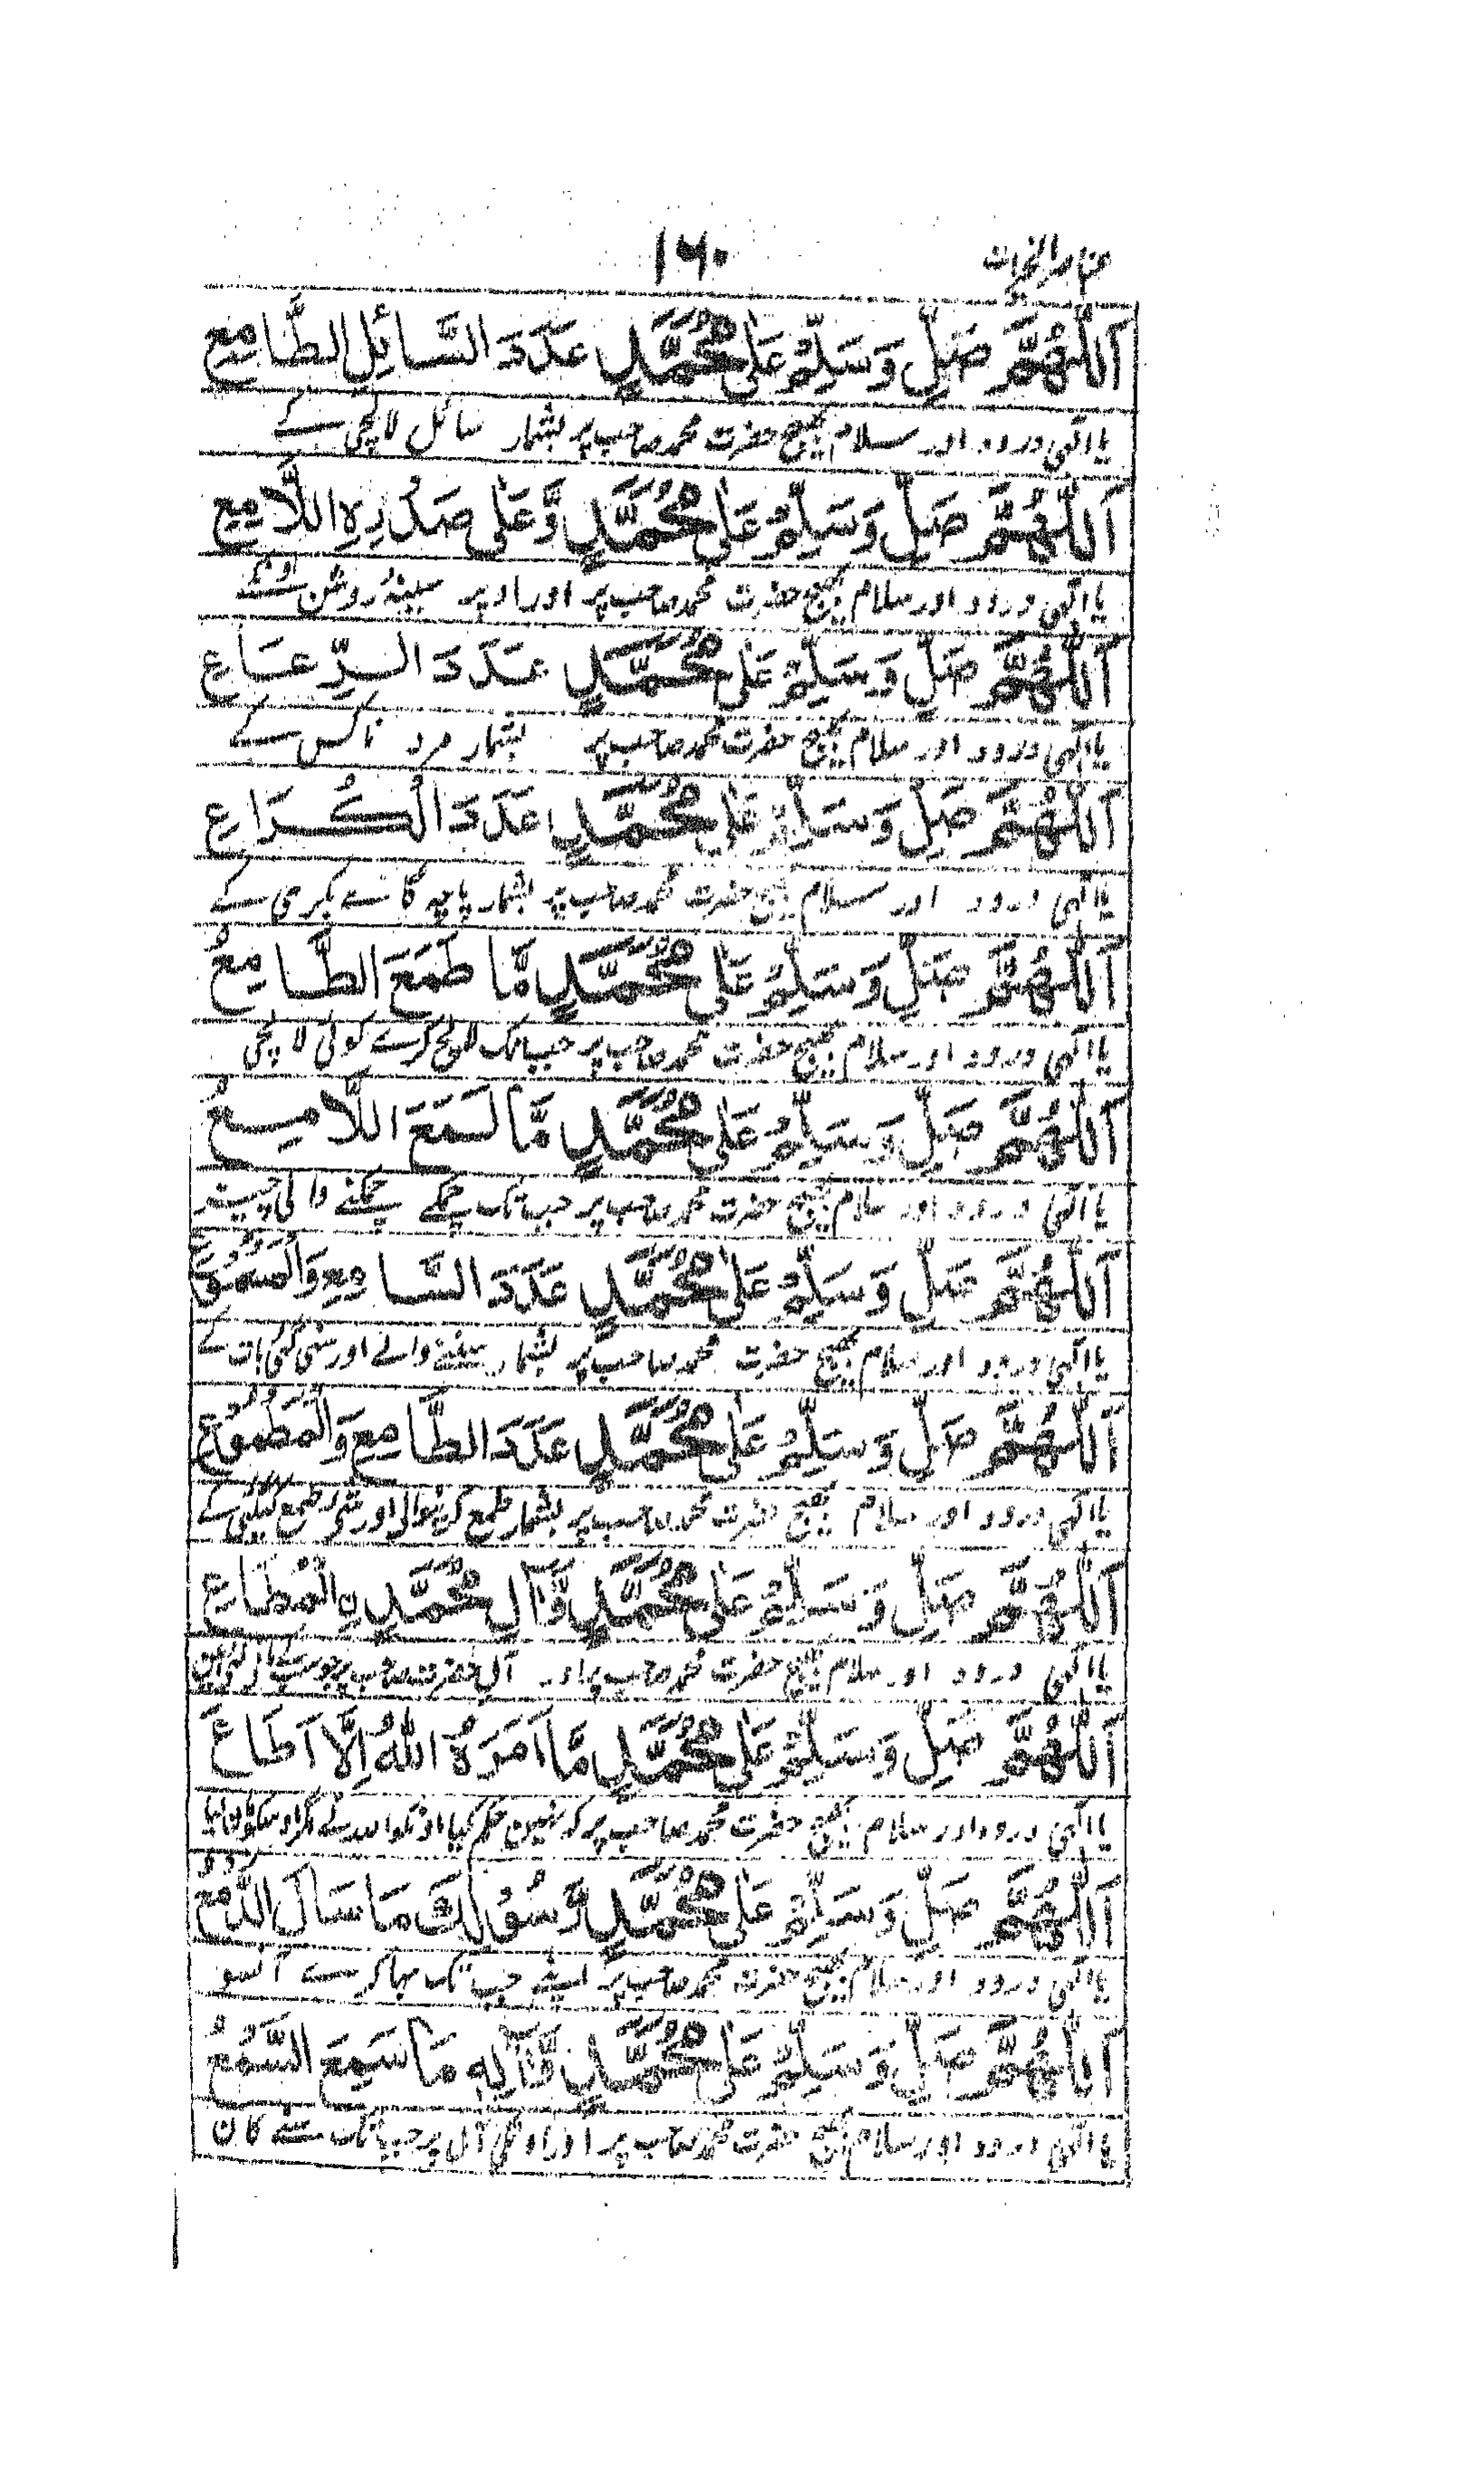 ۱۶۰
اَللّٰهُمَّ صَلِّ وَسَلِّمْ عَلٰی مُحَمَّدٍ عَدَدَ السَّائِلِ الطَّامِعِ
یا الٰہی درود اور سلام بھیج حضرت محمد صاحب پر بشمار سائل لالچی کے
اَللّٰهُمَّ صَلِّ وَسَلِّمْ عَلٰی مُحَمَّدٍ وَّعَلٰی صَدْرِهِ اللَّامِعِ
یا الٰہی درود اور سلام بھیج حضرت محمد صاحب پر اور اوپر سینہٴ روشن اونکے
اَللّٰهُمَّ صَلِّ وَسَلِّمْ عَلٰی مُحَمَّدٍ عَدَدَ الرِّعَاعِ
یا الٰہی درود اور سلام بھیج حضرت محمد صاحب پر بشمار مرد ناکس کے
اَللّٰهُمَّ صَلِّ وَسَلِّمْ عَلٰی مُحَمَّدٍ عَدَدَ الْكُرَاعِ
یا الٰہی درود اور سلام بھیج حضرت محمد صاحب پر بشمار پاچہ گائے بکری کے
اَللّٰهُمَّ صَلِّ وَسَلِّمْ عَلٰی مُحَمَّدٍ مَّا طَمَعَ الطَّامِعُ
یا الٰہی درود اور سلام بھیج حضرت محمد صاحب پر جب تک لالچ کرے کوئی لالچی
اَللّٰهُمَّ صَلِّ وَسَلِّمْ عَلٰی مُحَمَّدٍ مَّا لَمَعَ اللَّامِعُ
یا الٰہی درود اور سلام بھیج حضرت محمد صاحب پر جب تک چمکے چمکنے والی چیز
اَللّٰهُمَّ صَلِّ وَسَلِّمْ عَلٰی مُحَمَّدٍ عَدَدَ السَّامِعِ وَالْمَسْمُوْعِ
یا الٰہی درود اور سلام بھیج حضرت محمد صاحب پر بشمار سننے والے اور سنی گئی بات کے
اَللّٰهُمَّ صَلِّ وَسَلِّمْ عَلٰی مُحَمَّدٍ عَدَدَ الطَّامِعِ وَالْمَطْمُوْعِ
یا الٰہی درود اور سلام بھیج حضرت محمد صاحب پر بشمار طمع کرنیوالی اور طمع کے
اَللّٰهُمَّ صَلِّ وَسَلِّمْ عَلٰی مُحَمَّدٍ وَّاٰلِ مُحَمَّدِنِ الْمُطَاعِ
یا الٰہی درود اور سلام بھیج حضرت محمد صاحب پر اور آل حضرت صاحب پر جو
اَللّٰهُمَّ صَلِّ وَسَلِّمْ عَلٰی مُحَمَّدٍ مَّا اَمَرَهُ اللّٰهُ اِلَّا اَطَاعَ
یا الٰہی درود اور سلام بھیج حضرت محمد صاحب پر کہ نہیں حکم کیا اونکو اللہ نے مگر
اَللّٰهُمَّ صَلِّ وَسَلِّمْ عَلٰی مُحَمَّدٍ رَّسُوْلِكَ مَا سَالَ الدَّمْعُ
یا الٰہی درود اور سلام بھیج حضرت محمد صاحب پر اپنے جب تک بہا کرے آنسو
اَللّٰهُمَّ صَلِّ وَسَلِّمْ عَلٰی مُحَمَّدٍ وَّاٰلِهٖ مَا سَمِعَ السَّمْعُ
یا الٰہی درود اور سلام بھیج حضرت محمد صاحب پر اور اونکی آل پر جب تک سنے کان